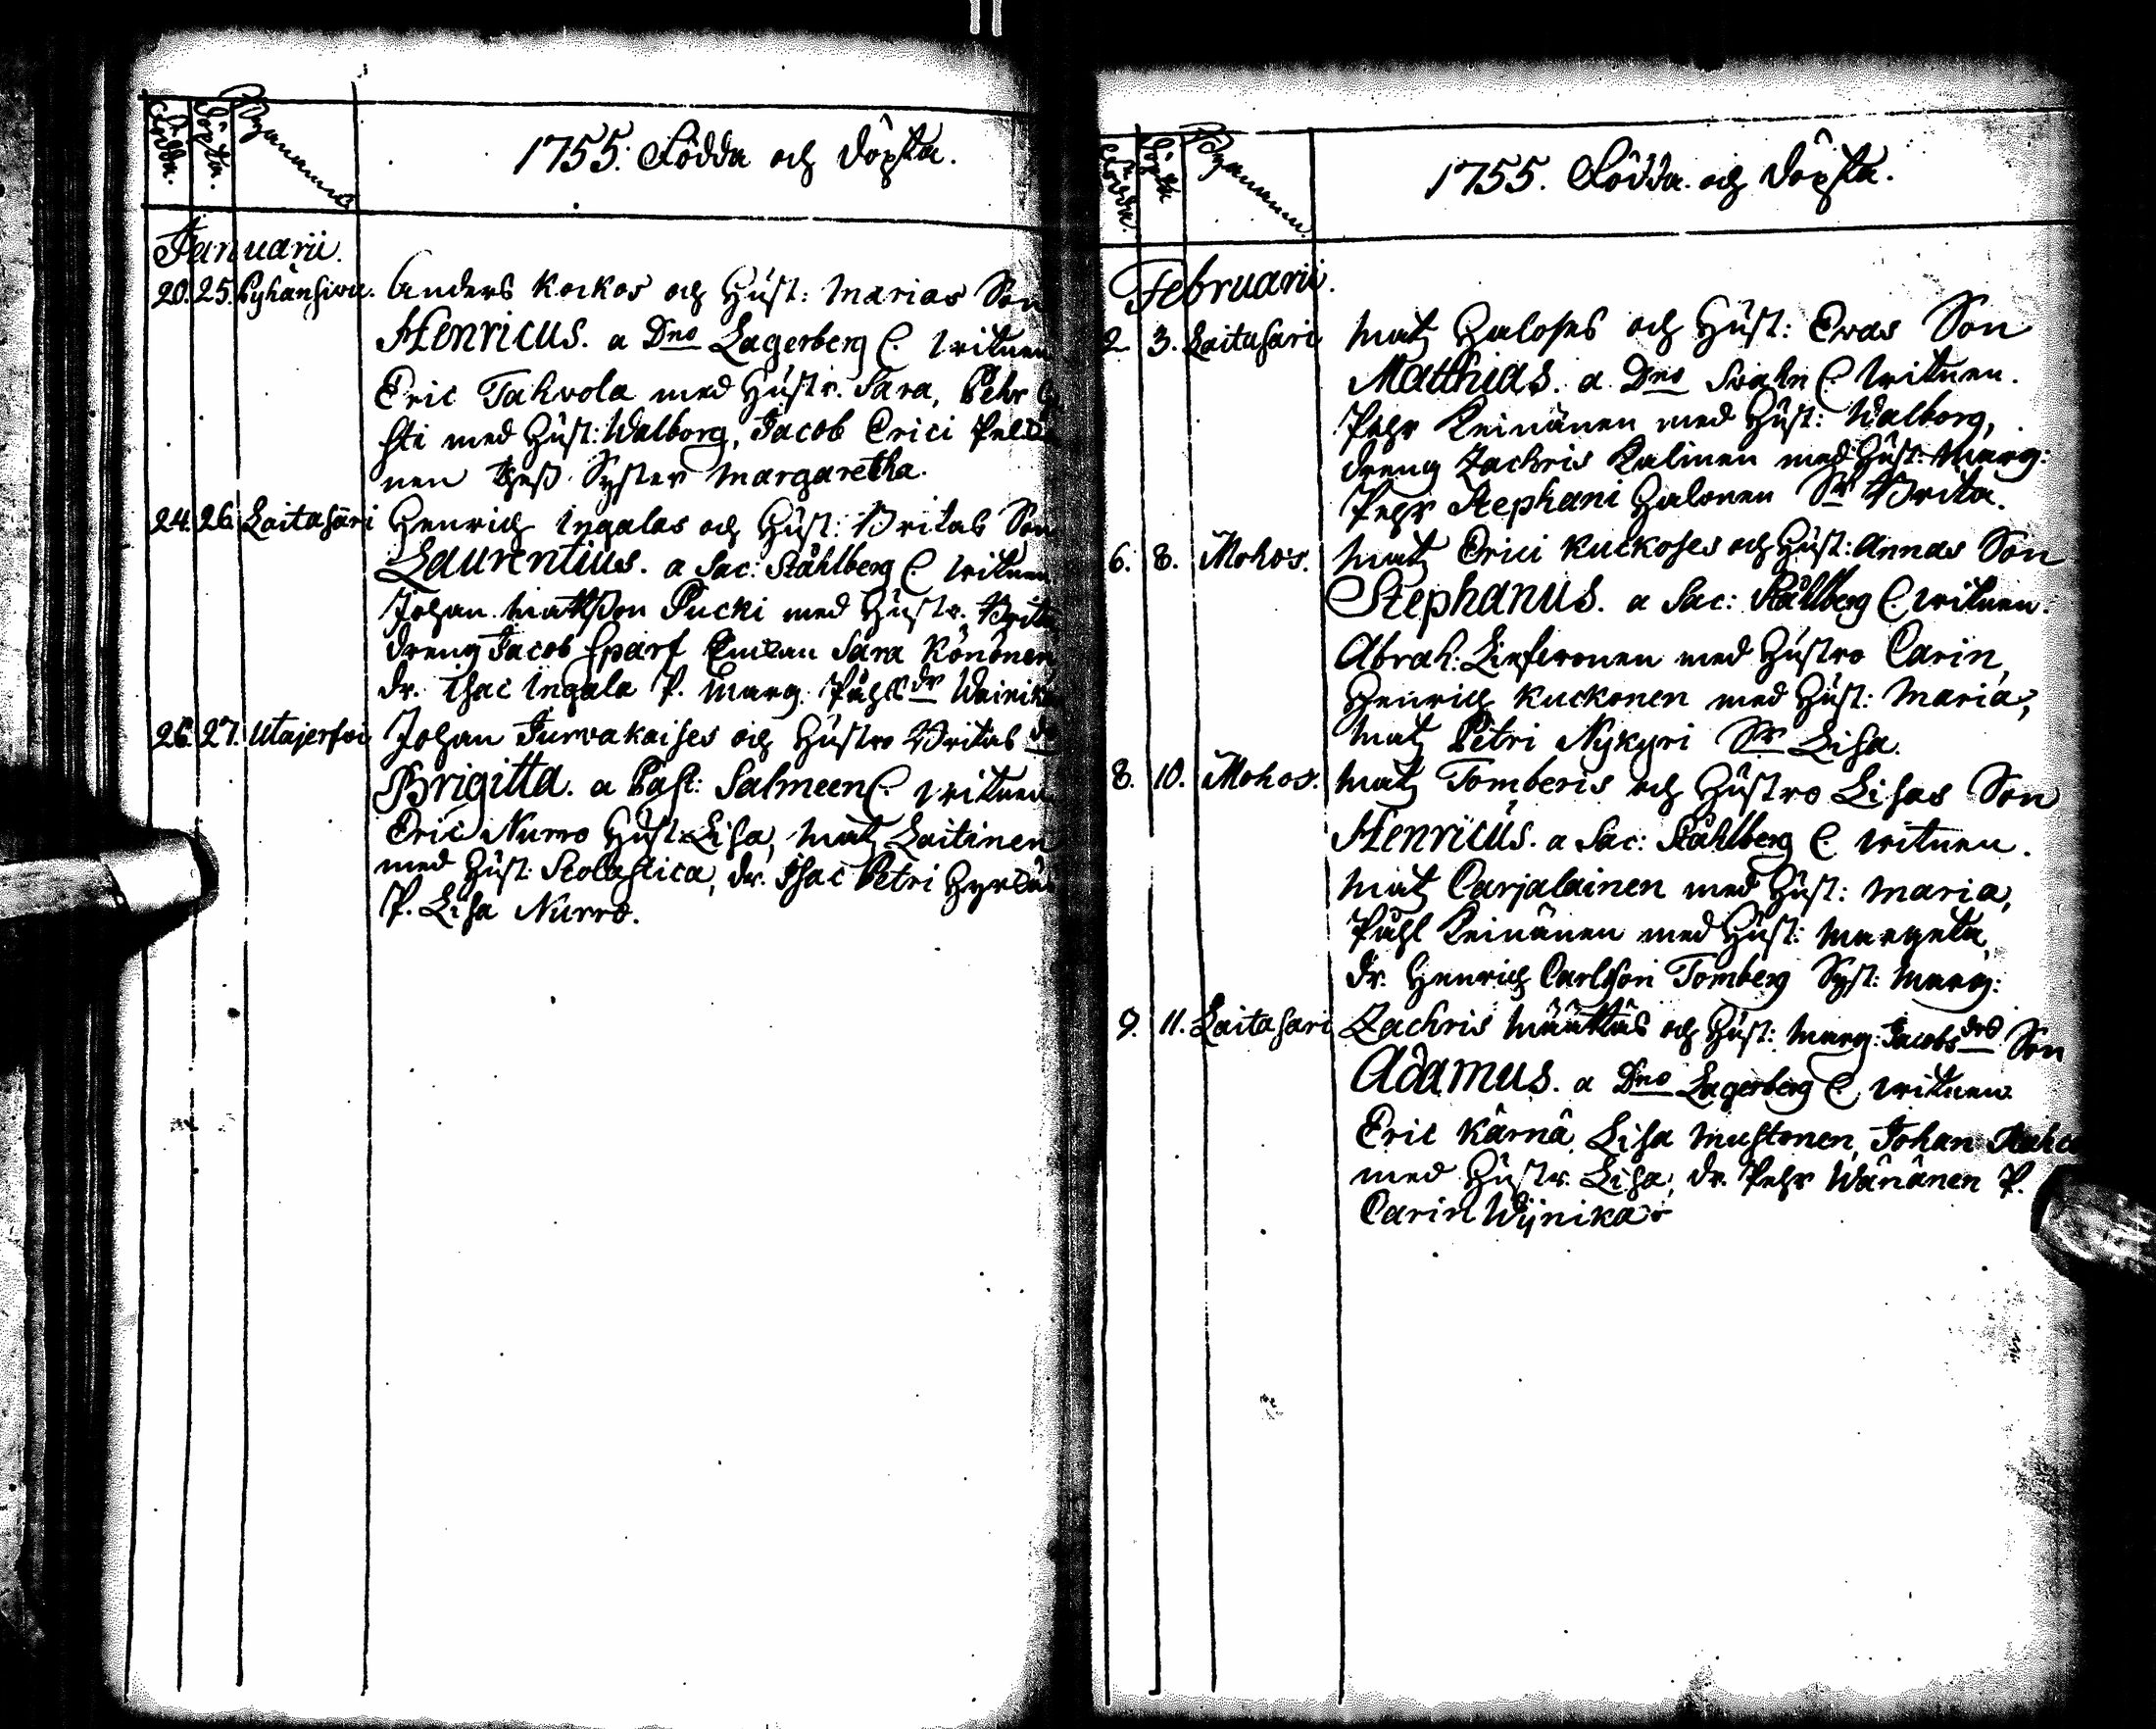 Födda. Döpta. Bynamnen
1755. Födda och Döpta.
Januarii.
20. 25. Pyhänsivu. Anders Kockos och Hust: Marias Son
Henricus. a Dno Lagerberg C. witnen
Eric Tahvola med Hustr. Sara, Pehr
sti med Hust: Walborg, Jacob Erici
nen thess Syster Margaretha.
24. 26. Laitasari Henrich Ingalas och Hust: Britas Son
Laurentius. a Sac: Ståhlberg C. witnen
Johan Mattsson Pucki med Hustr. Brita
dreng Jacob Sparf Enckan Sara Könönen
dr. Isac Ingala P. Marg. Påhls dr
26. 27. Utajerfwi Johan Turvakaises och Hustro Britas dr
Brigitta. a Past: Salmeen C. witnen
Eric Nurro Hust: Lisa, Matz Laitinen
med Hust: Scolastica, dr. Isac Petri
P. Lisa Nurro.
Födda. Döpta Bynamnen.
1755. Födda och Döpta.
Februarii.
2. 3. Laitasari Matz Haloses och Hust: Evas Son
Matthias. a Dno Svahn C. witnen.
Pehr Keinänen med Hust: Walborg,
dreng Zachris Kalinen med Hust: Marg:
Pehr Stephani Halonen Sr Brita.
6. 8. Mohos. Matz Erici Kuckoses och Hust: Annas Son
Stephanus. a Sac: Ståhlberg C. witnen.
Abrah: med Hustro Carin,
Henrich Kuckonen med Hust: Maria,
Matz Petri Nykyri Sr Lisa.
8. 10. Mohos. Matz Tomberis och Hustro Lisas Son
Henricus. a Sac: Ståhlberg C. witnen.
Matz Carjalainen med Hust: Maria,
Påhl Keinänen med Hust: Margeta,
dr. Henrich Carlsson Tomberg Syst: Marg:
9. 11. Laitasari Zachris Määttäs och Hust: Marg: Jacobs drs Son
Adamus. a Dno Lagerberg C. witnen
Eric Kärnä, Lisa Mustonen, Johan
med Hustr. Lisa, dr. Pehr Wänänen P.
Carin Wijnika